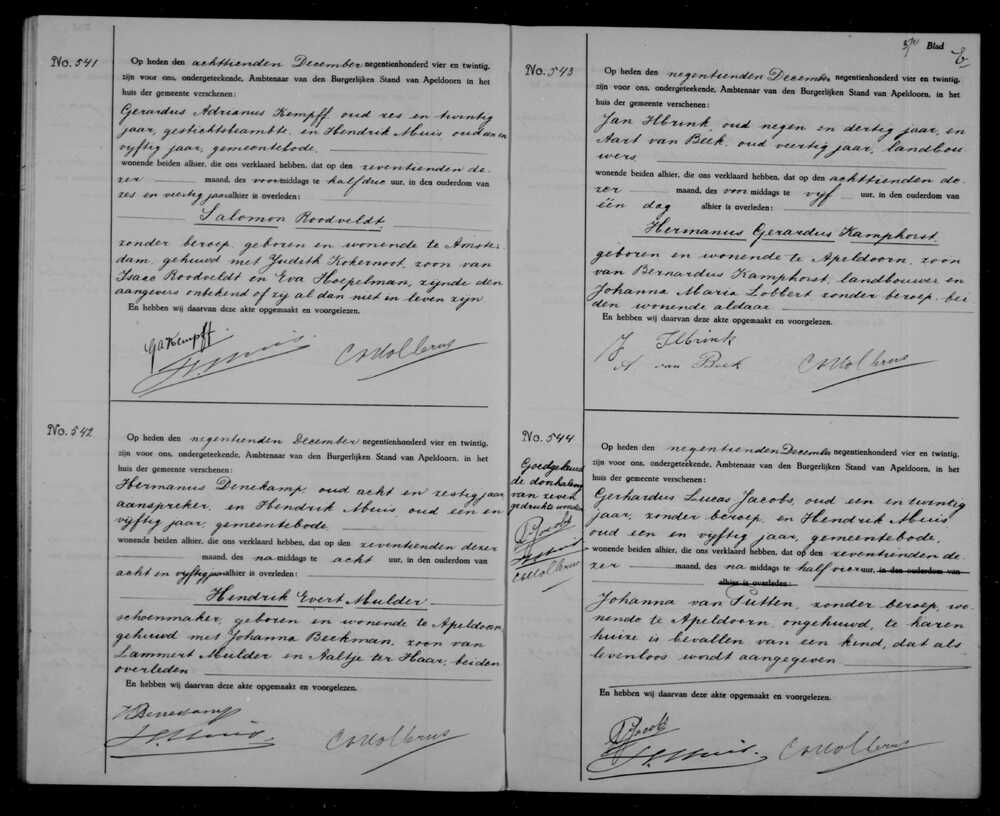 No. 541
Op heden den achttienden December negentienhonderd vier en twintig,
zijn voor ons, ondergeteekende, Ambtenaar van den Burgerlijken Stand van Apeldoorn, in het
huis der gemeente verschenen:
Gerardus Adrianus Kempff, oud zes en twintig
jaar, gestichtsbeambte, en Hendrik Muis, oud een en
vyftig jaar, gemeentebode,
wonende beiden alhier, die ons verklaard hebben, dat op den zeventienden de-
zer maand, des voormiddags te half drie uur, in den ouderdom van
zes en veertig jaar alhier is overleden:
Salomon Roodveldt,
zonder beroep, geboren en wonende te Amster-
dam, gehuwd met Judith Kokernoot, zoon van
Isaac Roodveldt en Eva Hoepelman, zijnde den
aangevers onbekend of zij al dan niet in leven zijn
En hebben wij daarvan deze akte opgemaakt en voorgelezen.
GAKempff
H. Muis.
No. 542
Op heden den negentienden December negentienhonderd vier en twintig,
zijn voor ons, ondergeteekende, Ambtenaar van den Burgerlijken Stand van Apeldoorn, in het
huis der gemeente verschenen:
Hermanus Denekamp, oud acht en zestig jaar,
aanspreker, en Hendrik Muis, oud een en
vijftig jaar, gemeentebode,
wonende beiden alhier, die ons verklaard hebben, dat op den zeventienden dezer
maand, des namiddags te acht uur, in den ouderdom van
acht en vyftig jaar alhier is overleden:
Hendrik Evert Mulder
schoenmaker, geboren en wonende te Apeldoorn,
gehuwd met Johanna Beekman, zoon van
Lammert Mulder en Aaltje ter Haar, beiden
overleden.
En hebben wij daarvan deze akte opgemaakt en voorgelezen.
HDenekamp
H. Muis
Blad
No. 543
Op heden den negentienden December negentienhonderd vier en twintig,
zijn voor ons, ondergeteekende, Ambtenaar van den Burgerlijken Stand van Apeldoorn, in het
huis der gemeente verschenen:
Jan Ilbrink, oud negen en dertig jaar, en
Aart van Beek, oud veertig jaar, landbou-
wers,
wonende beiden alhier, die ons verklaard hebben, dat op den achttienden de-
zer maand, des voormiddags te vijf uur, in den ouderdom van
één dag alhier is overleden:
Hermanus Gerardus Kamphorst,
geboren en wonende te Apeldoorn, zoon
van Bernardus Kamphorst, landbouwer en
Johanna Maria Lobbert zonder beroep, bei-
den wonende aldaar
En hebben wij daarvan deze akte opgemaakt en voorgelezen.
J Ilbrink
A van Beek
No. 544
Goedgekeurd
de doorhaling
van zeven
gedrukte woorden
Jacobs
H Muis
Op heden den negentienden December negentienhonderd vier en twintig,
zijn voor ons, ondergeteekende, Ambtenaar van den Burgerlijken Stand van Apeldoorn, in het
huis der gemeente verschenen:
Gerhardus Lucas Jacobs, oud een en twintig
jaar, zonder beroep, en Hendrik Muis,
oud een en vyftig jaar, gemeentebode,
wonende beiden alhier, die ons verklaard hebben, dat op den zeventienden de-
zer maand, des namiddags te half vier uur, in den ouderdom van
alhier is overleden:
Johanna van Putten, zonder beroep, wo-
nende te Apeldoorn, ongehuwd, te haren
huize is bevallen van een kind, dat als
levenloos wordt aangegeven
En hebben wij daarvan deze akte opgemaakt en voorgelezen.
Jacobs
H. Muis.